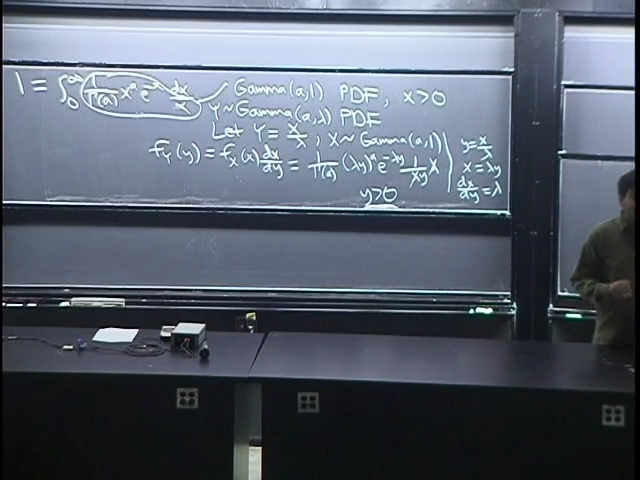 1 = ∫₀^∞ 1/Γ(a) xᵃ e⁻ˣ dx/x Gamma(a,1) PDF, x>0
Y ~ Gamma(a,λ) PDF
Let Y = X/λ, X ~ Gamma(a,1)
f_Y(y) = f_X(x) dx/dy = 1/Γ(a) (λy)ᵃ e^{-λy} 1/(λy) λ
y>0
y = x/λ
x = λy
dx/dy = λ